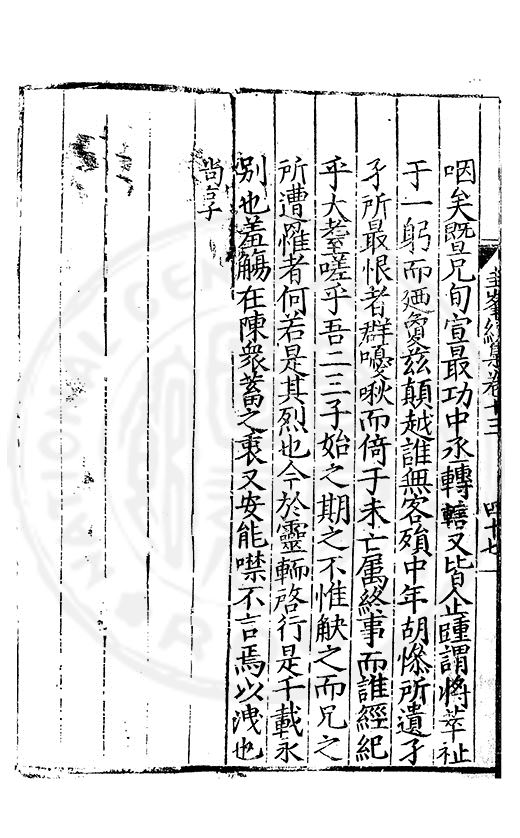 咽矣暨兄旬宣最功中丞轉轄又皆企踵謂將萃祉
于一躬而廼夐茲顛越誰無客殞中年胡慘所遺孑
孑所最恨者群嚘啾而倚于未亡属終事而誰經紀
乎大耋嗟乎吾二三子始之期之不惟觖之而兄之
所遭罹者何若是其烈也今於靈輀啓行是千載永
别也羞觴在陳衆蓄之衷又安能噤不言焉以洩也
尚享
圭峯續集卷十三 四十七